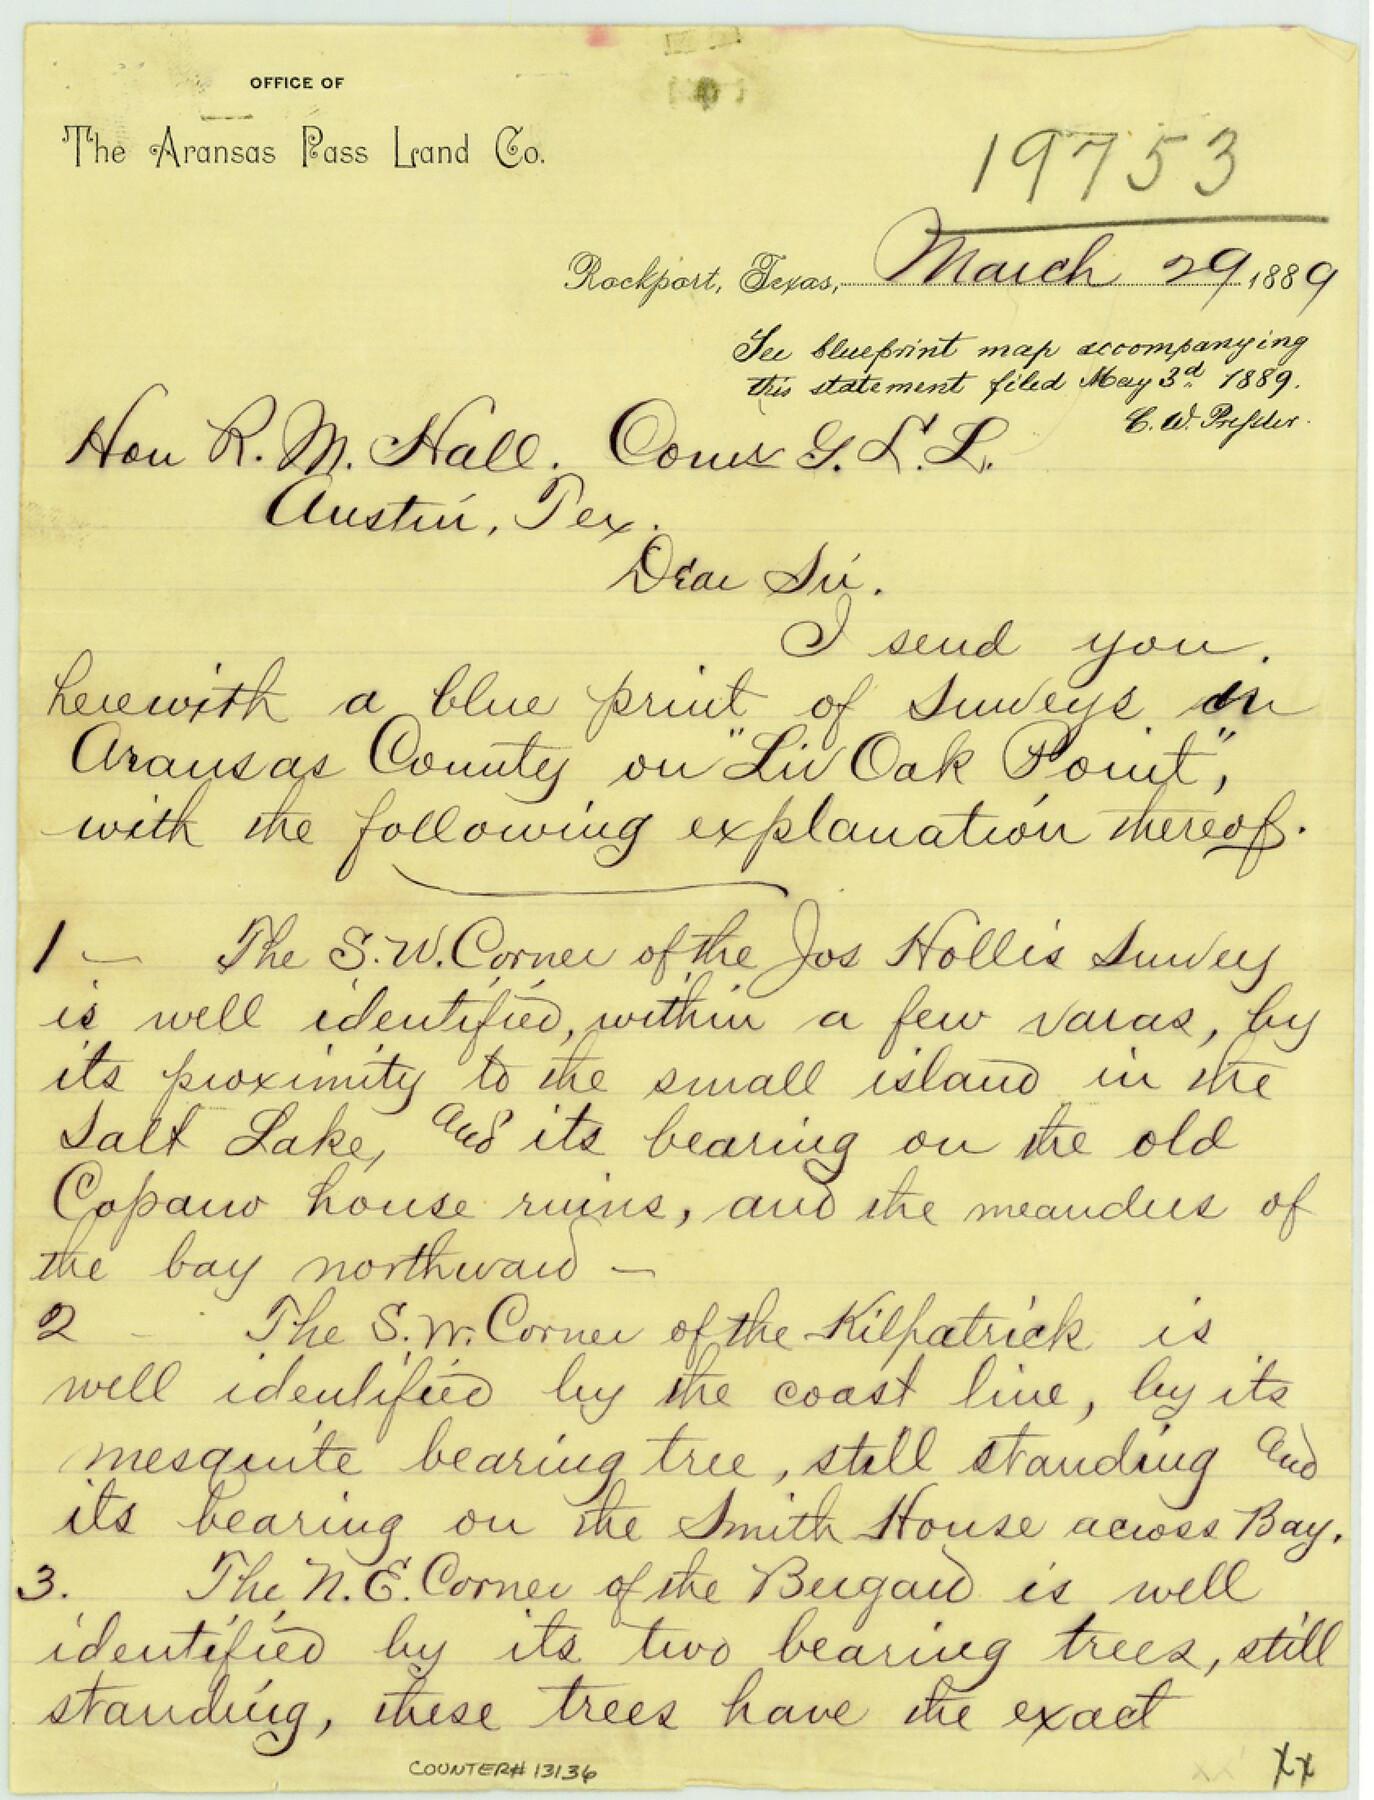 OFFICE OF
The Aransas Pass Land Co.
19753
Rockport, Texas, March 29 1889
See blueprint map accompanying
this statement filed May 3d 1889.
C. W. Pressler.
Hon R. M. Hall. Comr G. L. L.
Austin, Tex.
Dear Sir.
I send you.
herewith a blue print of Surveys in
Aransas County on "Liv Oak Point",
with the following explanation thereof.
1 — The S.W. Corner of the Jos Hollis Survey
is well identified, within a few varas, by
its proximity to the small island in the
Salt Lake, and its bearing on the old
Copano house ruins, and the meanders of
the bay northward —
2 - The S.W. Corner of the Kilpatrick is
well identified by the coast line, by its
mesquite bearing tree, still standing and
its bearing on the Smith House across Bay.
3. The N.E. Corner of the Bergard is well
identified by its two bearing trees, still
standing, these trees have the exact
COUNTER# 13136
xx